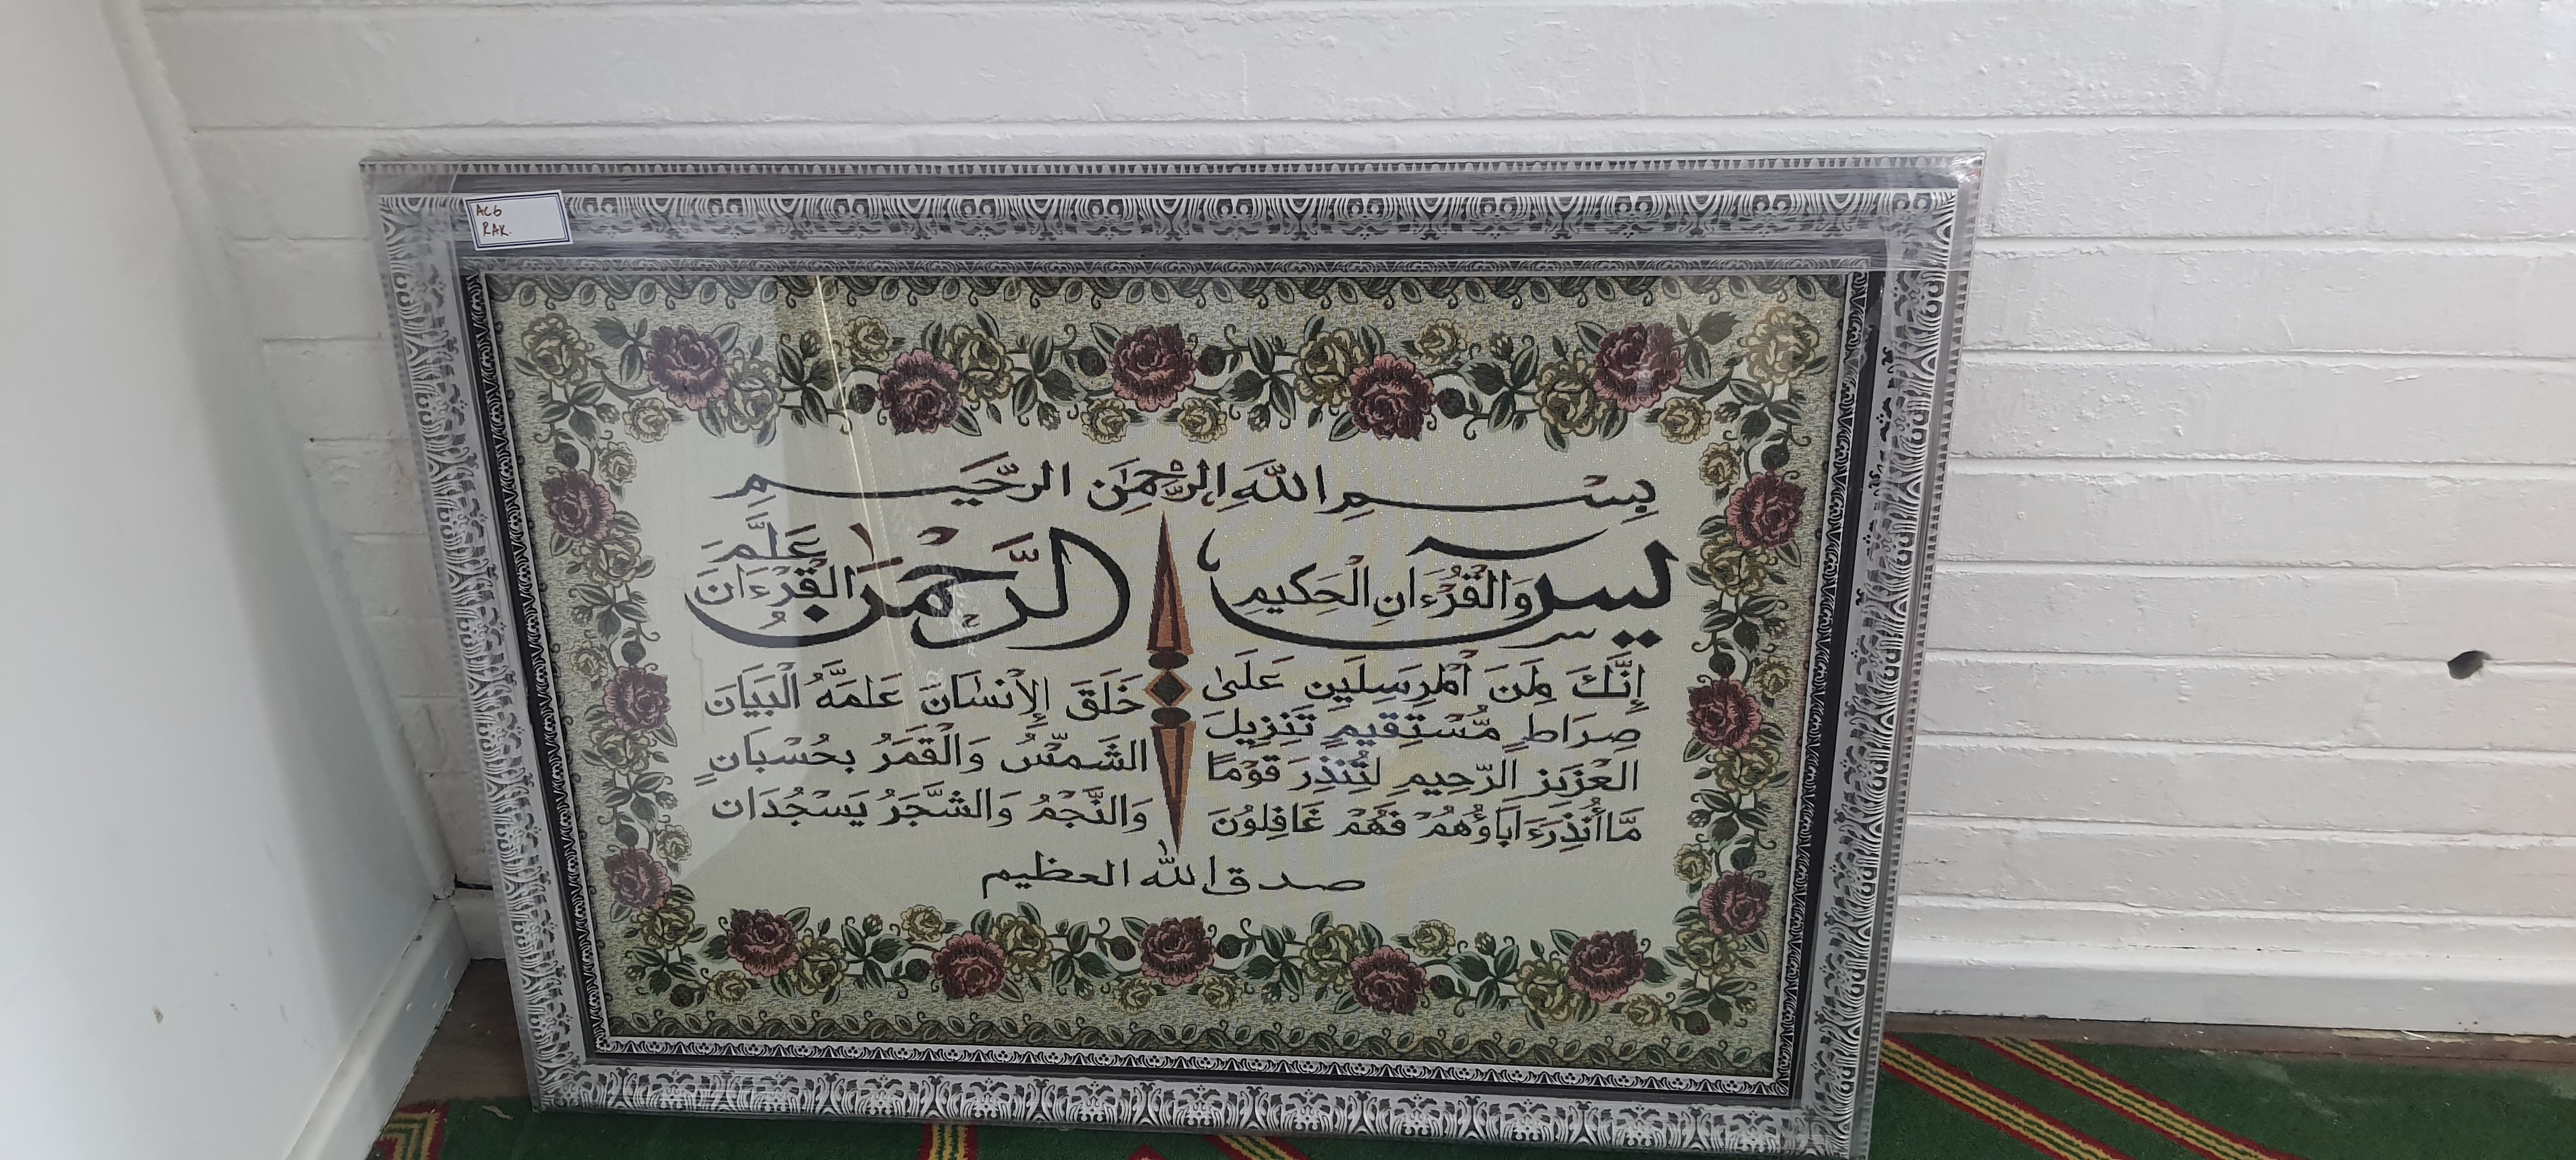 AC6
RAK.
بِسْمِ اللَّهِ الرَّحْمَٰنِ الرَّحِيمِ
يسٓ وَالْقُرْءَانِ الْحَكِيمِ
إِنَّكَ لَمِنَ الْمُرْسَلِينَ عَلَىٰ
صِرَاطٍ مُّسْتَقِيمٍ تَنْزِيلَ
الْعَزِيزِ الرَّحِيمِ لِتُنْذِرَ قَوْمًا
مَّا أُنْذِرَ ءَابَاؤُهُمْ فَهُمْ غَافِلُونَ
الرَّحْمَٰنُ عَلَّمَ الْقُرْءَانَ
خَلَقَ الْإِنْسَانَ عَلَّمَهُ الْبَيَانَ
الشَّمْسُ وَالْقَمَرُ بِحُسْبَانٍ
وَالنَّجْمُ وَالشَّجَرُ يَسْجُدَانِ
صدق الله العظيم